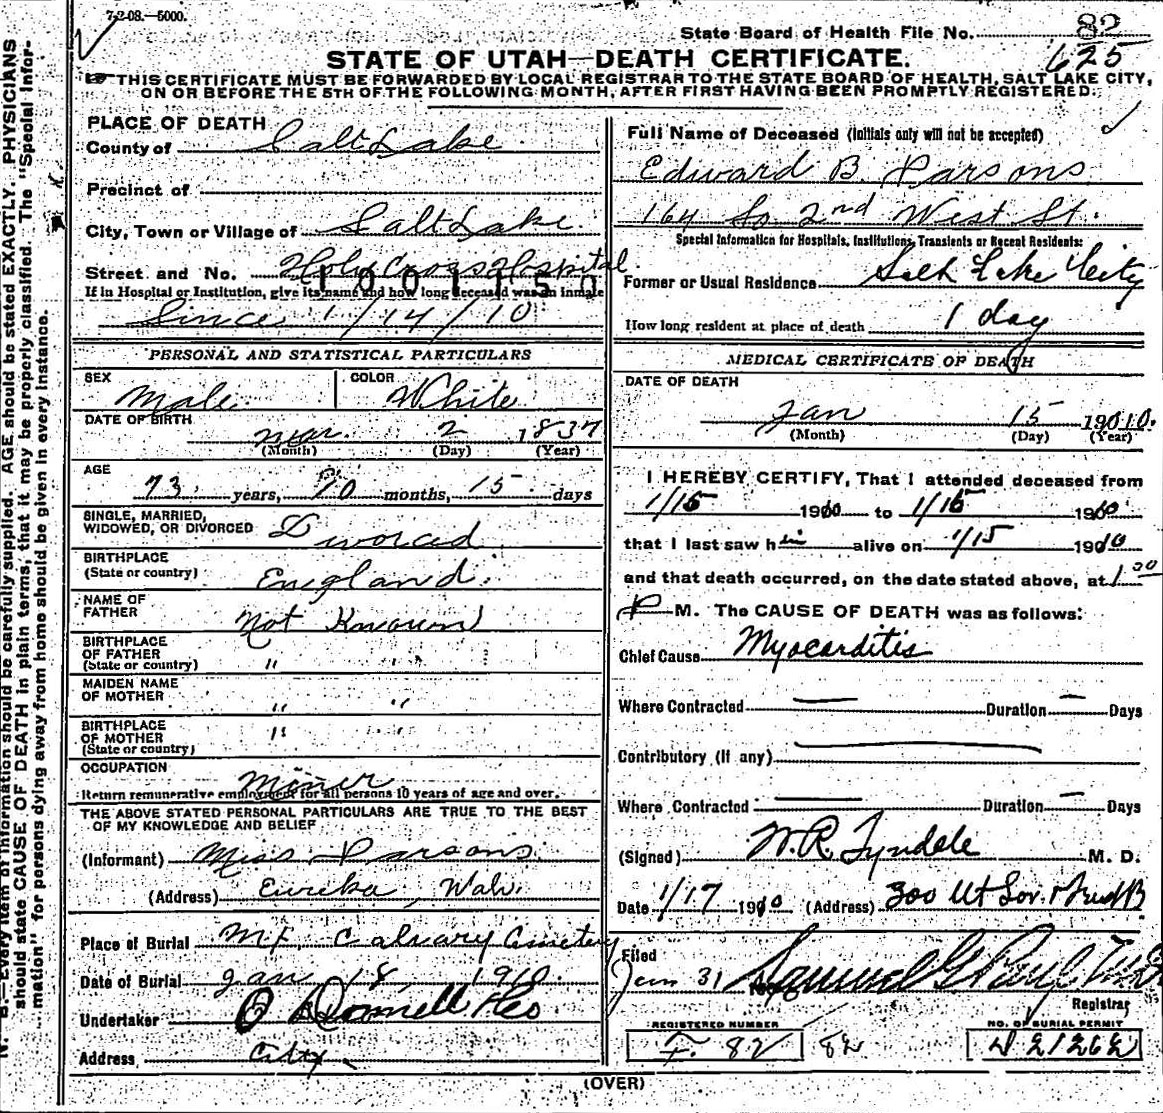 7-2-08.—5000.
State Board of Health File No. 82
625
STATE OF UTAH—DEATH CERTIFICATE.
THIS CERTIFICATE MUST BE FORWARDED BY LOCAL REGISTRAR TO THE STATE BOARD OF HEALTH, SALT LAKE CITY,
ON OR BEFORE THE 5TH OF THE FOLLOWING MONTH, AFTER FIRST HAVING BEEN PROMPTLY REGISTERED.
N. B.—Every item of information should be carefully supplied. AGE should be stated EXACTLY. PHYSICIANS
should state CAUSE OF DEATH in plain terms, that it may be properly classified. The "Special Infor-
mation" for persons dying away from home should be given in every instance.
PLACE OF DEATH
County of Salt Lake
Precinct of
City, Town or Village of Salt Lake
Street and No. Holy Cross Hospital
1001150
If in Hospital or Institution, give its name and how long deceased was an inmate
Since 1/14/10
PERSONAL AND STATISTICAL PARTICULARS
SEX Male COLOR White
DATE OF BIRTH Mar. 2 1837
(Month) (Day) (Year)
AGE
73 years, 10 months, 15 days
SINGLE, MARRIED,
WIDOWED, OR DIVORCED Divorced
BIRTHPLACE
(State or country) England
NAME OF
FATHER Not Known
BIRTHPLACE
OF FATHER
(State or country) " "
MAIDEN NAME
OF MOTHER " "
BIRTHPLACE
OF MOTHER " "
(State or country)
OCCUPATION Miner
Return remunerative employment for all persons 10 years of age and over.
THE ABOVE STATED PERSONAL PARTICULARS ARE TRUE TO THE BEST
OF MY KNOWLEDGE AND BELIEF
(Informant) Miss Parsons
(Address) Eureka,
Place of Burial Mt. Calvary Cemetery
Date of Burial Jan 18 1910
Undertaker O Donnell &Co
Address City
Full Name of Deceased (Initials only will not be accepted)
Edward B. Parsons
164 So 2nd West St.
Special Information for Hospitals, Institutions, Transients or Recent Residents:
Former or Usual Residence Salt Lake City
How long resident at place of death 1 day
MEDICAL CERTIFICATE OF DEATH
DATE OF DEATH
Jan 15 1910.
(Month) (Day) (Year)
I HEREBY CERTIFY, That I attended deceased from
1/15 1910 to 1/15 1910
that I last saw him alive on 1/15 1910
and that death occurred, on the date stated above, at 1.00
P M. The CAUSE OF DEATH was as follows:
Chief Cause Myocarditis
Where Contracted — Duration — Days
Contributory (if any) —
Where Contracted — Duration — Days
(Signed) W.R. Tyndale M. D.
Date 1/17 1910 (Address) 300 Ut
Filed
Jan 31 Samuel G Paul
Registrar
REGISTERED NUMBER
F. 82 82
NO. OF BURIAL PERMIT
21262
(OVER)